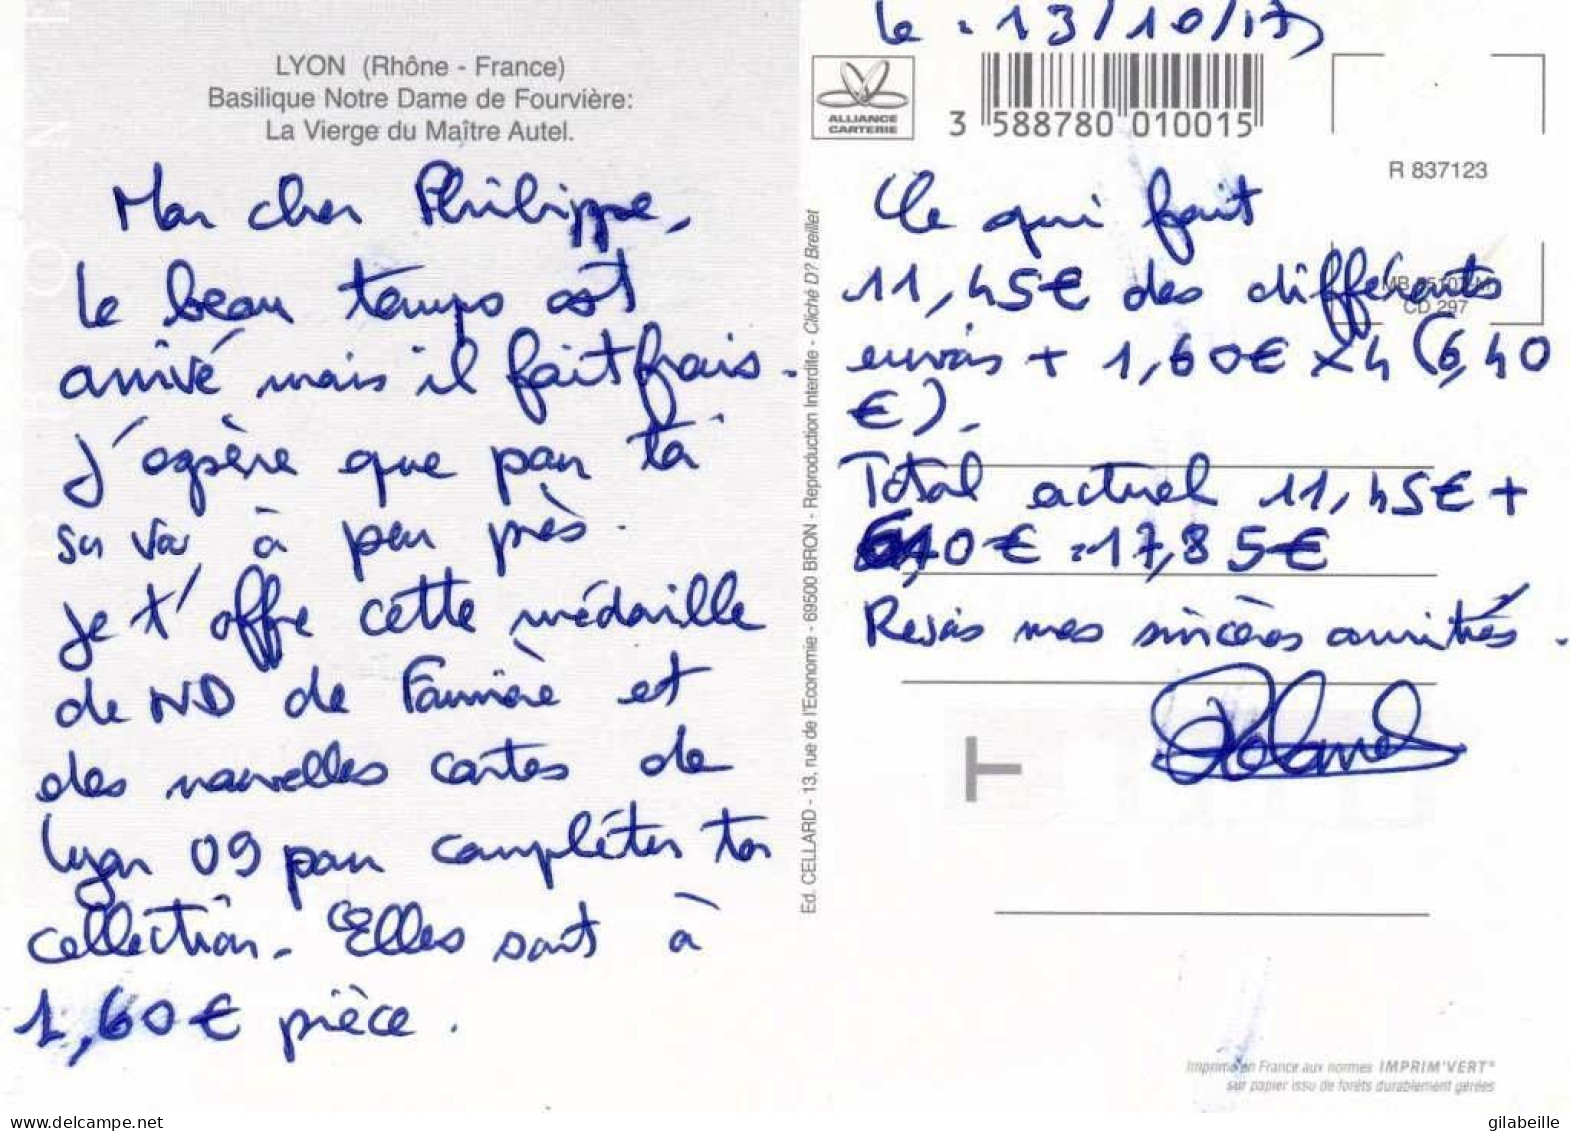 LYON (Rhône - France)
Basilique Notre Dame de Fourvière:
La Vierge du Maître Autel.
Mon cher Philippe,
le beau temps est
arrivé mais il fait frais.
J'espère que pour toi
su va à peu près.
je t'offre cette médaille
de ND de Fourvière et
des nouvelles cartes de
Lyon 09 pour compléter ta
collection. Elles sont à
1,60€ pièce.
Ed. CELLARD - 13, rue de l'Economie - 69500 BRON - Reproduction Interdite - Cliché D? Breillet
le : 13/10/17
ALLIANCE
CARTERIE
3 588780 010015
R 837123
CD 297
Ce qui fait
11,45€ des différents
envois + 1,60€ x 4 (6,40
€).
Total actuel 11,45€ +
6,40€ = 17,85€
Reçois mes sincères amitiés.
Roland
T
Imprimé en France aux normes IMPRIM'VERT®
sur papier issu de forêts durablement gérées
gilabeille